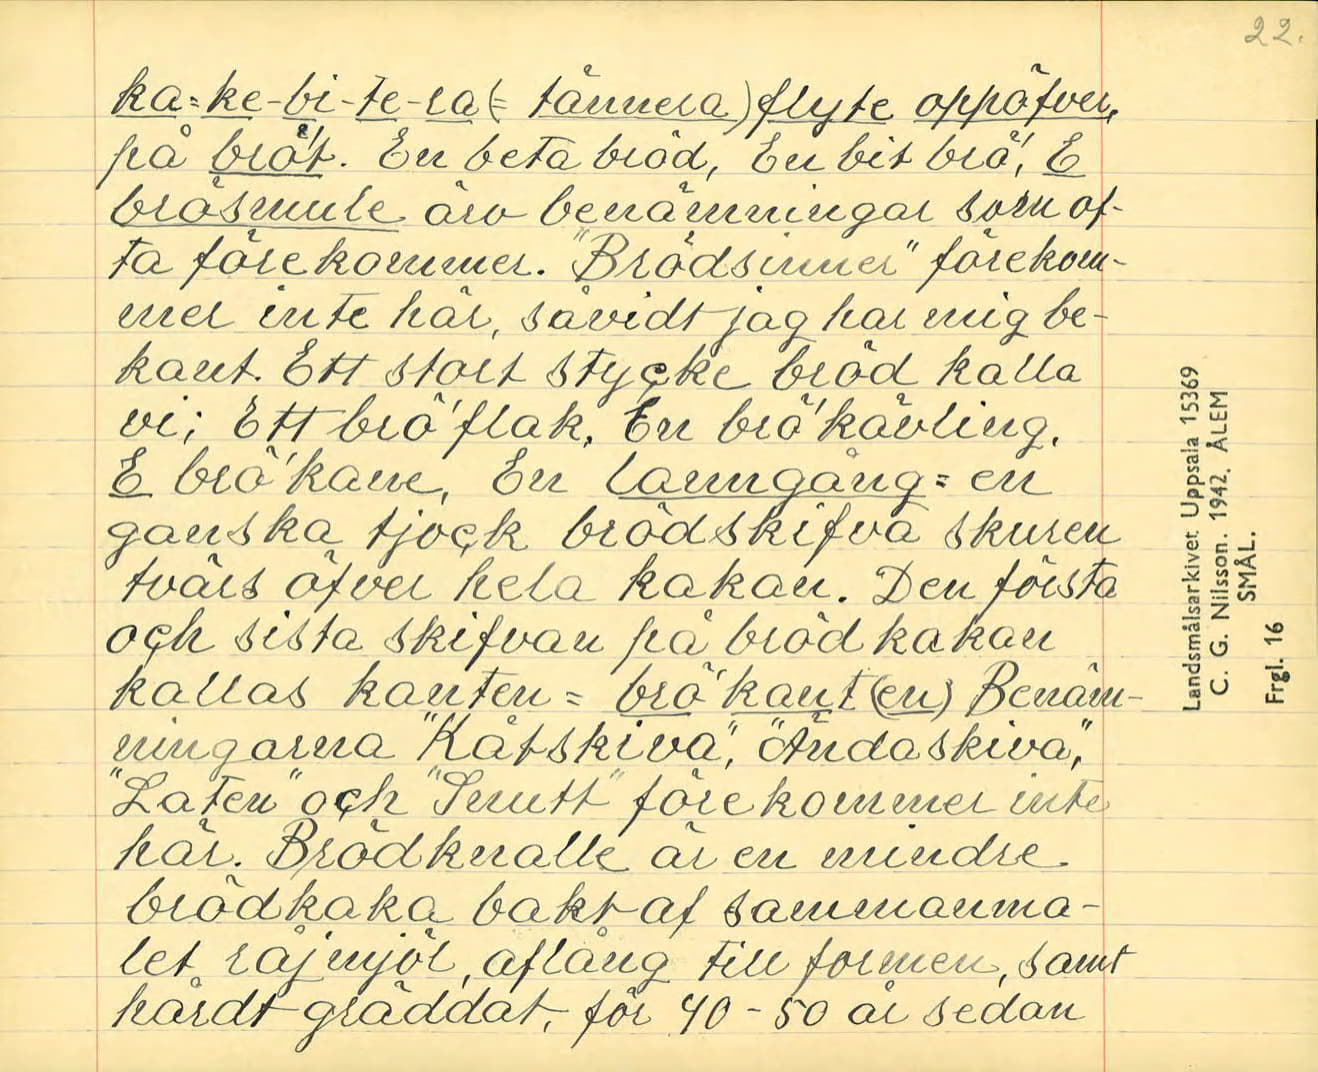 22.
ka-ke-bi-te-ra (= tännera) flyte oppöfver,
på brö't. En beta bröd, En bit brö', E
brösmule äro benämningar som of-
ta förekommer. "Brödsinner" förekom-
mer inte här, såvidt jag har mig be-
kant. Ett stort stycke bröd kalla
vi; Ett brö'flak, En brö'kävling,
E brö'kane, En lanngång = en
ganska tjock brödskifva skuren
tvärs öfver hela kakan. Den första
och sista skifvan på brödkakan
kallas kanten = brö'kant(en) Benäm-
ningarna "Kåtskiva", "Ändaskiva",
"Laten" och "Smutt" förekommer inte
här. Brödknalle är en mindre
brödkaka bakt af sammanma-
let råjmjöl, aflång till formen, samt
hårdt gräddat, för 40-50 år sedan
Landsmålsarkivet Uppsala 15369
C. G. Nilsson. 1942. ÅLEM
SMÅL.
Frgl. 16